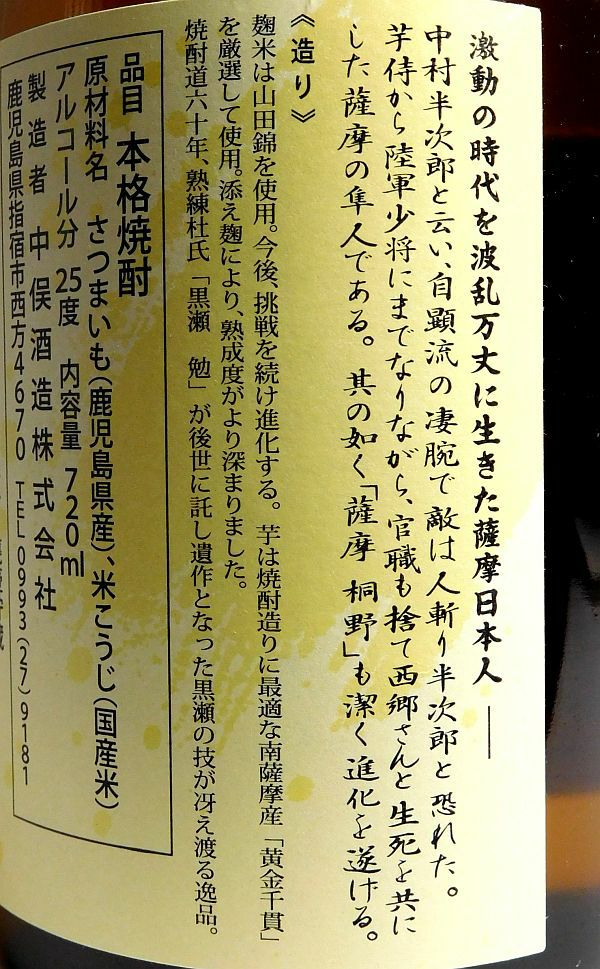 激動の時代を波乱万丈に生きた薩摩日本人 ——
中村半次郎と云い、自顕流の凄腕で敵は人斬り半次郎と恐れた。
芋侍から陸軍少将にまでなりながら、官職も捨て西郷さんと生死を共に
した薩摩の隼人である。其の如く「薩摩 桐野」も潔く進化を遂げる。
《造り》
麹米は山田錦を使用。今後、挑戦を続け進化する。芋は焼酎造りに最適な南薩摩産「黄金千貫」
を厳選して使用。添え麹により、熟成度がより深まりました。
焼酎道六十年、熟練杜氏「黒瀬 勉」が後世に託し遺作となった黒瀬の技が冴え渡る逸品。
品目 本格焼酎
原材料名 さつまいも(鹿児島県産)、米こうじ(国産米)
アルコール分 25度 内容量 720ml
製造者 中俣酒造株式会社
鹿児島県指宿市西方4670 TEL 0993(27)9181